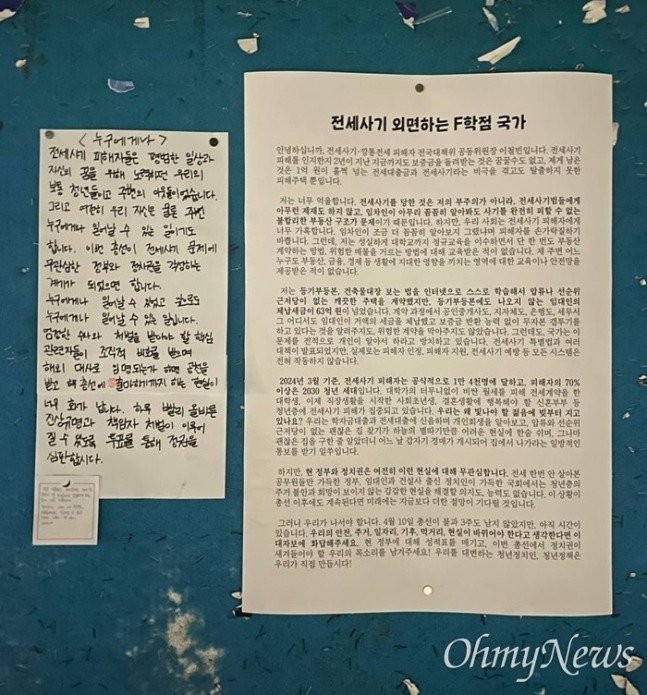 < 누구에게나 >
전세사기 피해자들은 평범한 일상과
자신의 꿈을 위해 노력하던 우리의
보통 청년들이고 주변의 이웃들이었습니다.
그리고 여전히 우리 자신은 물론 주변
누구에게나 일어날 수 있는 일이기도
합니다. 이번 총선이 전세사기 문제에
무관심한 정부와 정치권을 각성하는
계기가 되었으면 합니다.
누구에게나 일어날 수 있었고 앞으로도
누구에게나 일어날 수 있는 일입니다.
엄정한 수사와 처벌을 받아야 할 핵심
관련자들이 조직적 비호를 받으며
해외 대사로 임명되는가 하면 공천을
받고 핵 총선에 출마하기까지 하는 현실이
너무 화가 납니다. 하루 빨리 올바른
진상규명과 책임자 처벌이 이루어
질 수 있도록 투표를 통해 정권을
심판합시다.
전세사기 외면하는 F학점 국가
안녕하십니까, 전세사기·깡통전세 피해자 전국대책위 공동위원장 이철빈입니다. 전세사기
피해를 인지한지 2년이 지난 지금까지도 보증금을 돌려받는 것은 꿈꿀수도 없고, 제게 남은
것은 1억 원이 훌쩍 넘는 전세대출금과 전세사기라는 비극을 겪고도 탈출하지 못한
피해주택 뿐입니다.
저는 너무 억울합니다. 전세사기를 당한 것은 저의 부주의가 아니라, 전세사기범들에게
아무런 제재도 하지 않고, 임차인이 아무리 꼼꼼히 알아봐도 사기를 완전히 피할 수 없는
불합리한 부동산 구조가 문제이기 때문입니다. 하지만, 우리 사회는 전세사기 피해자에게
너무 가혹합니다. 임차인이 조금 더 꼼꼼히 알아보지 그랬냐며 피해자를 손가락질하기
바쁩니다. 그런데, 저는 성실하게 대학교까지 정규교육을 이수하면서 단 한 번도 부동산
계약하는 방법, 위험한 매물을 거르는 방법에 대해 교육받은 적이 없습니다. 제 주변 어느
누구도 부동산, 금융, 경제 등 생활에 지대한 영향을 끼치는 영역에 대한 교육이나 안전망을
제공받은 적이 없습니다.
저는 등기부등본, 건축물대장 보는 법을 인터넷으로 스스로 학습해서 압류나 선순위
근저당이 없는 깨끗한 주택을 계약했지만, 등기부등본에도 나오지 않는 임대인의
체납세금이 63억 원이 넘었습니다. 계약 과정에서 공인중개사도, 지자체도, 은행도, 세무서
그 어디서도 임대인이 거액의 세금을 체납했고 보증금 반환 능력 없이 무자본 갭투기를
하고 있다는 것을 알려주지도, 위험한 계약을 막아주지도 않았습니다. 그런데도, 국가는 이
문제를 전적으로 개인이 알아서 하라고 방치하고 있습니다. 전세사기 특별법과 여러
대책이 발표되었지만, 실제로는 피해자 인정, 피해자 지원, 전세사기 예방 등 모든 시스템은
전혀 작동하지 않습니다.
2024년 3월 기준, 전세사기 피해자는 공식적으로 1만 4천명에 달하고, 피해자의 70%
이상은 2030 청년 세대입니다. 대학가의 터무니없이 비싼 월세를 피해 전세계약을 한
대학생, 이제 직장생활을 시작한 사회초년생, 결혼생활에 행복해야 할 신혼부부 등
청년층에 전세사기 피해가 집중되고 있습니다. 우리는 왜 빛나야 할 젊음에 빚부터 지고
있나요? 우리는 학자금대출과 전세대출에 신음하며 개인회생을 알아보고, 압류와 선순위
근저당이 없는 괜찮은 집 찾기가 하늘의 별따기만큼 어려운 현실에 한숨 쉬며, 그나마
괜찮은 집을 구한 줄 알았더니 어느 날 갑자기 경매가 개시되어 집에서 나가라는 일방적인
통보를 받기 일쑤입니다.
하지만, 현 정부와 정치권은 여전히 이런 현실에 대해 무관심합니다. 전세 한번 안 살아본
공무원들만 가득한 정부, 임대인과 건설사 출신 정치인이 가득한 국회에서는 청년층의
주거 불안과 희망이 보이지 않는 갑갑한 현실을 해결할 의지도, 능력도 없습니다. 이 상황이
총선 이후에도 계속된다면 미래에는 지금보다 더한 절망이 기다릴 것입니다.
그러니 우리가 나서야 합니다. 4월 10일 총선이 불과 3주도 남지 않았지만, 아직 시간이
있습니다. 우리의 안전, 주거, 일자리, 기후, 먹거리, 현실이 바뀌어야 한다고 생각한다면 이
대자보에 화답해주세요. 현 정부에 대해 성적표를 매기고, 이번 총선에서 정치권이
새겨들어야 할 우리의 목소리를 남겨주세요! 우리를 대변하는 청년정치인, 청년정책은
우리가 직접 만듭시다!
OhmyNews